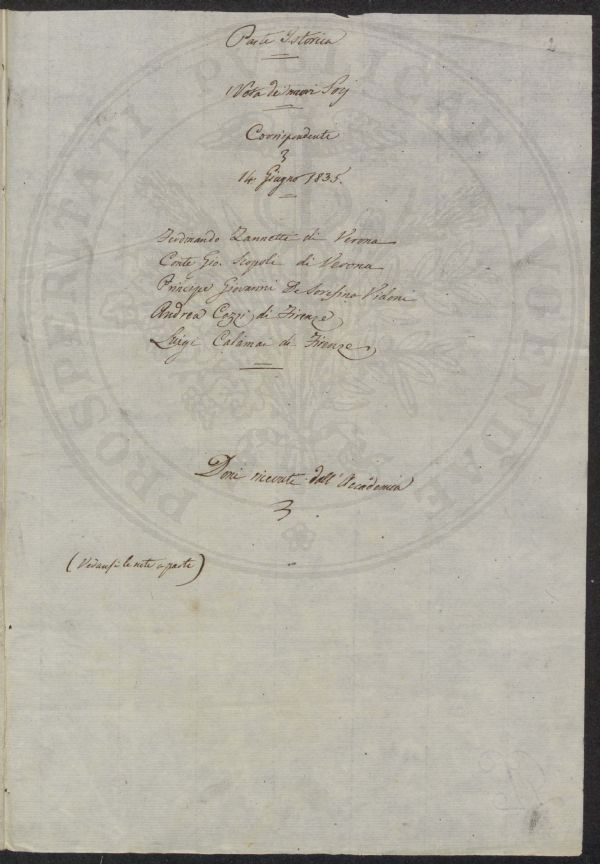 2
Parte Istorica
Nota de' nuovi Socj
Corrispondenti
14. Giugno 1835.
Ferdinando Zannetti di Verona
Conte Gio. Scopoli di Verona
Principe Giovanni De Soresino Vidoni
Andrea Cozzi di Firenze
Luigi Calamai di Firenze
Doni ricevuti dall'Accademia
(Vedansi le note a parte)
PROSPERITATI PUBLICAE AUGENDAE